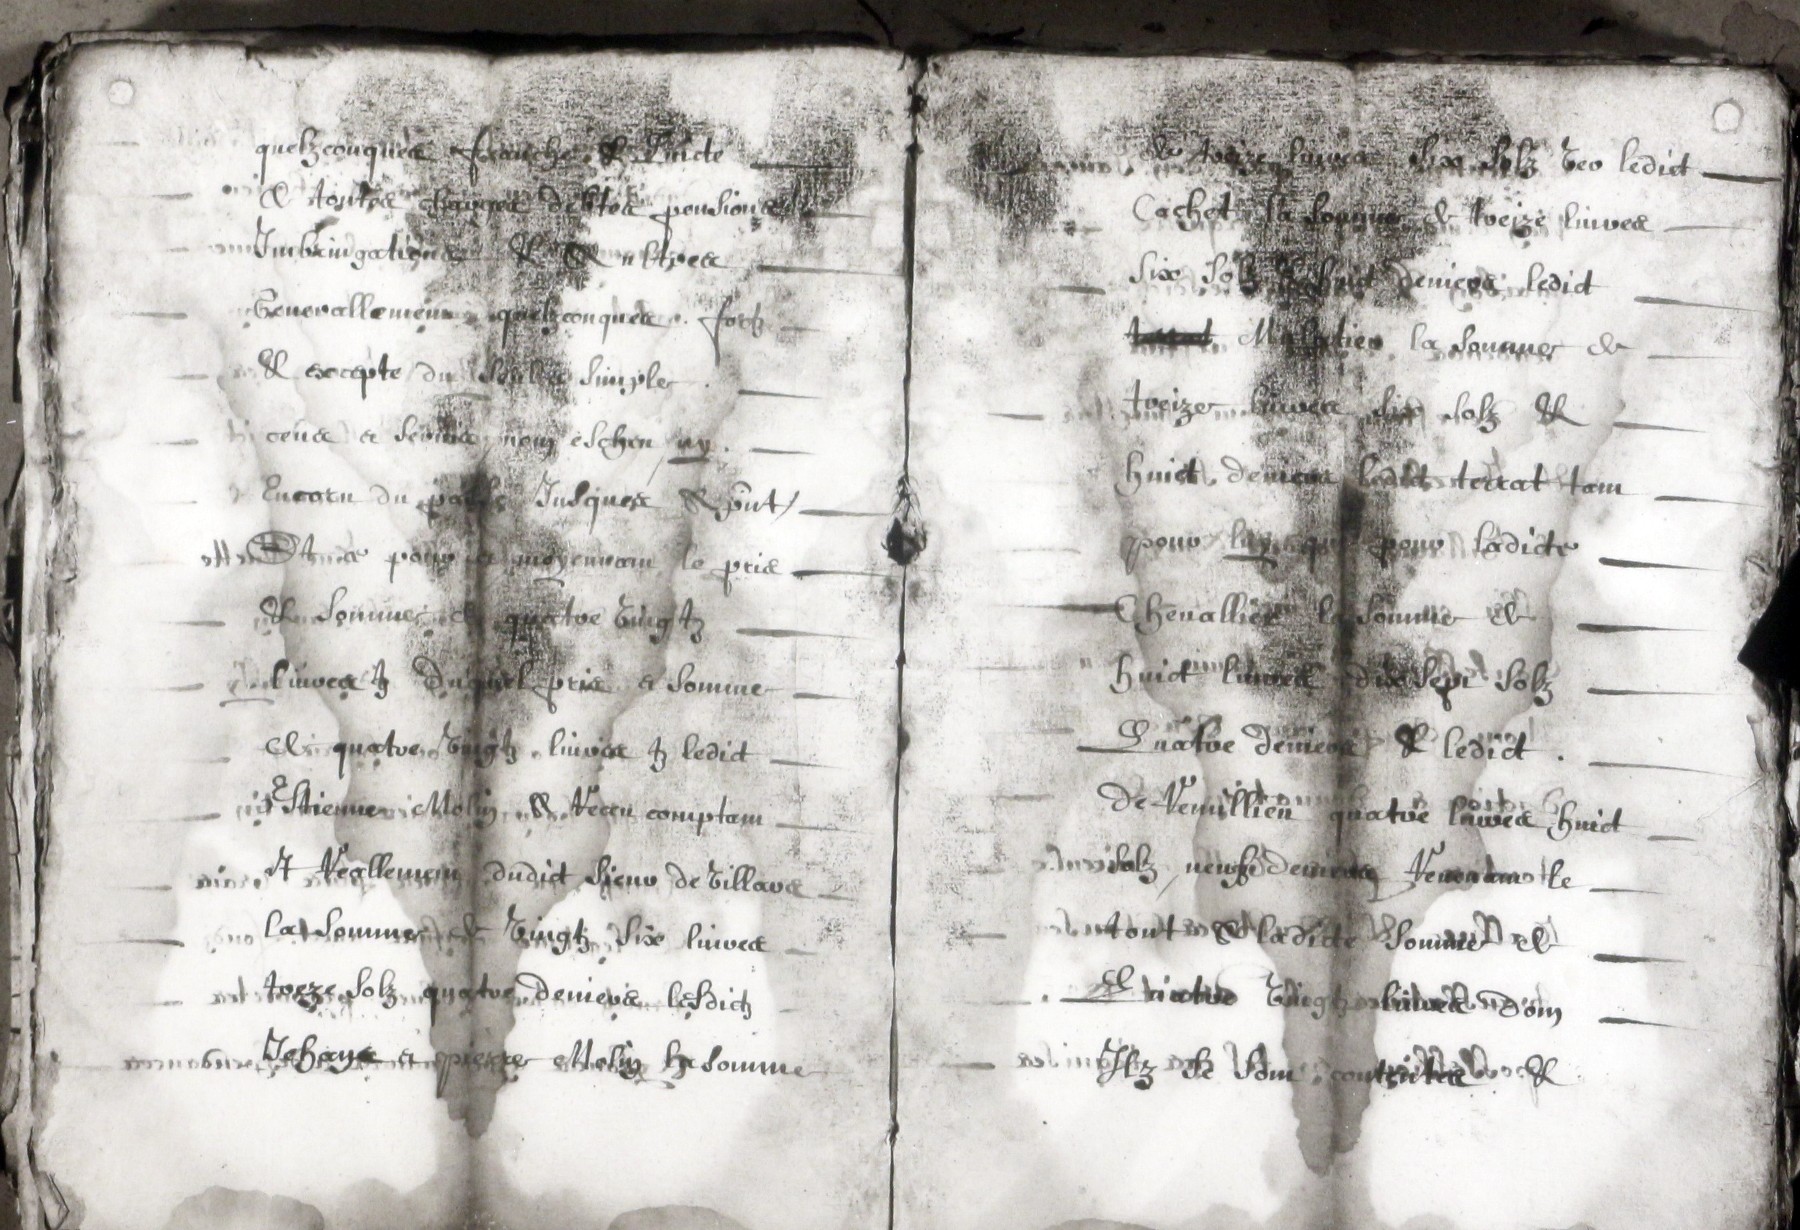 quelzconques franche & quicte
& toutes charges debtes pensions
Imbringations & & aultres
Generallement quelzconques fors
& excepte du simple
cens a servis non escheu ny
Encoru du passe Jusques & pnt
Et ce pour et moyennant le pris
& somme de quatre vingtz
livres tz duquel pris et somme
de quatre vingtz livres tz ledict
Estienne Molin & Receu comptant
Et Reallement dudict sieur de Villars
la somme de vingtz six livres
treze solz quatre deniers lesdictz
Jehan et pierre Molin la somme
de treize livres six solz ledict
Cochet la somme de treize livres
six solz huict deniers ledict
la somme de
treize livres six solz &
huict deniers ledict terrat tant
pour luy que pour ladicte
Chevallier la somme de
huict livres dix sept solz
Quatre deniers & ledict
de quatre livres huict
solz neufz deniers Revenant le
tout & ladicte somme de
Quatre vingtz livres dont
Ilz se sont contentes &